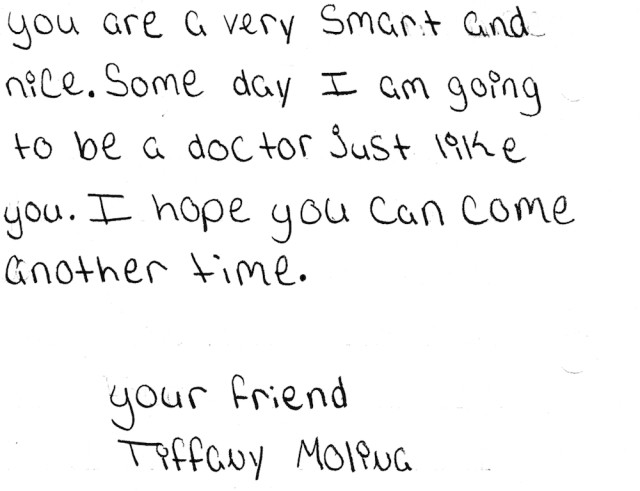 you are a very smart and
nice. Some day I am going
to be a doctor just like
you. I hope you can come
another time.
your friend
Tiffany Molina